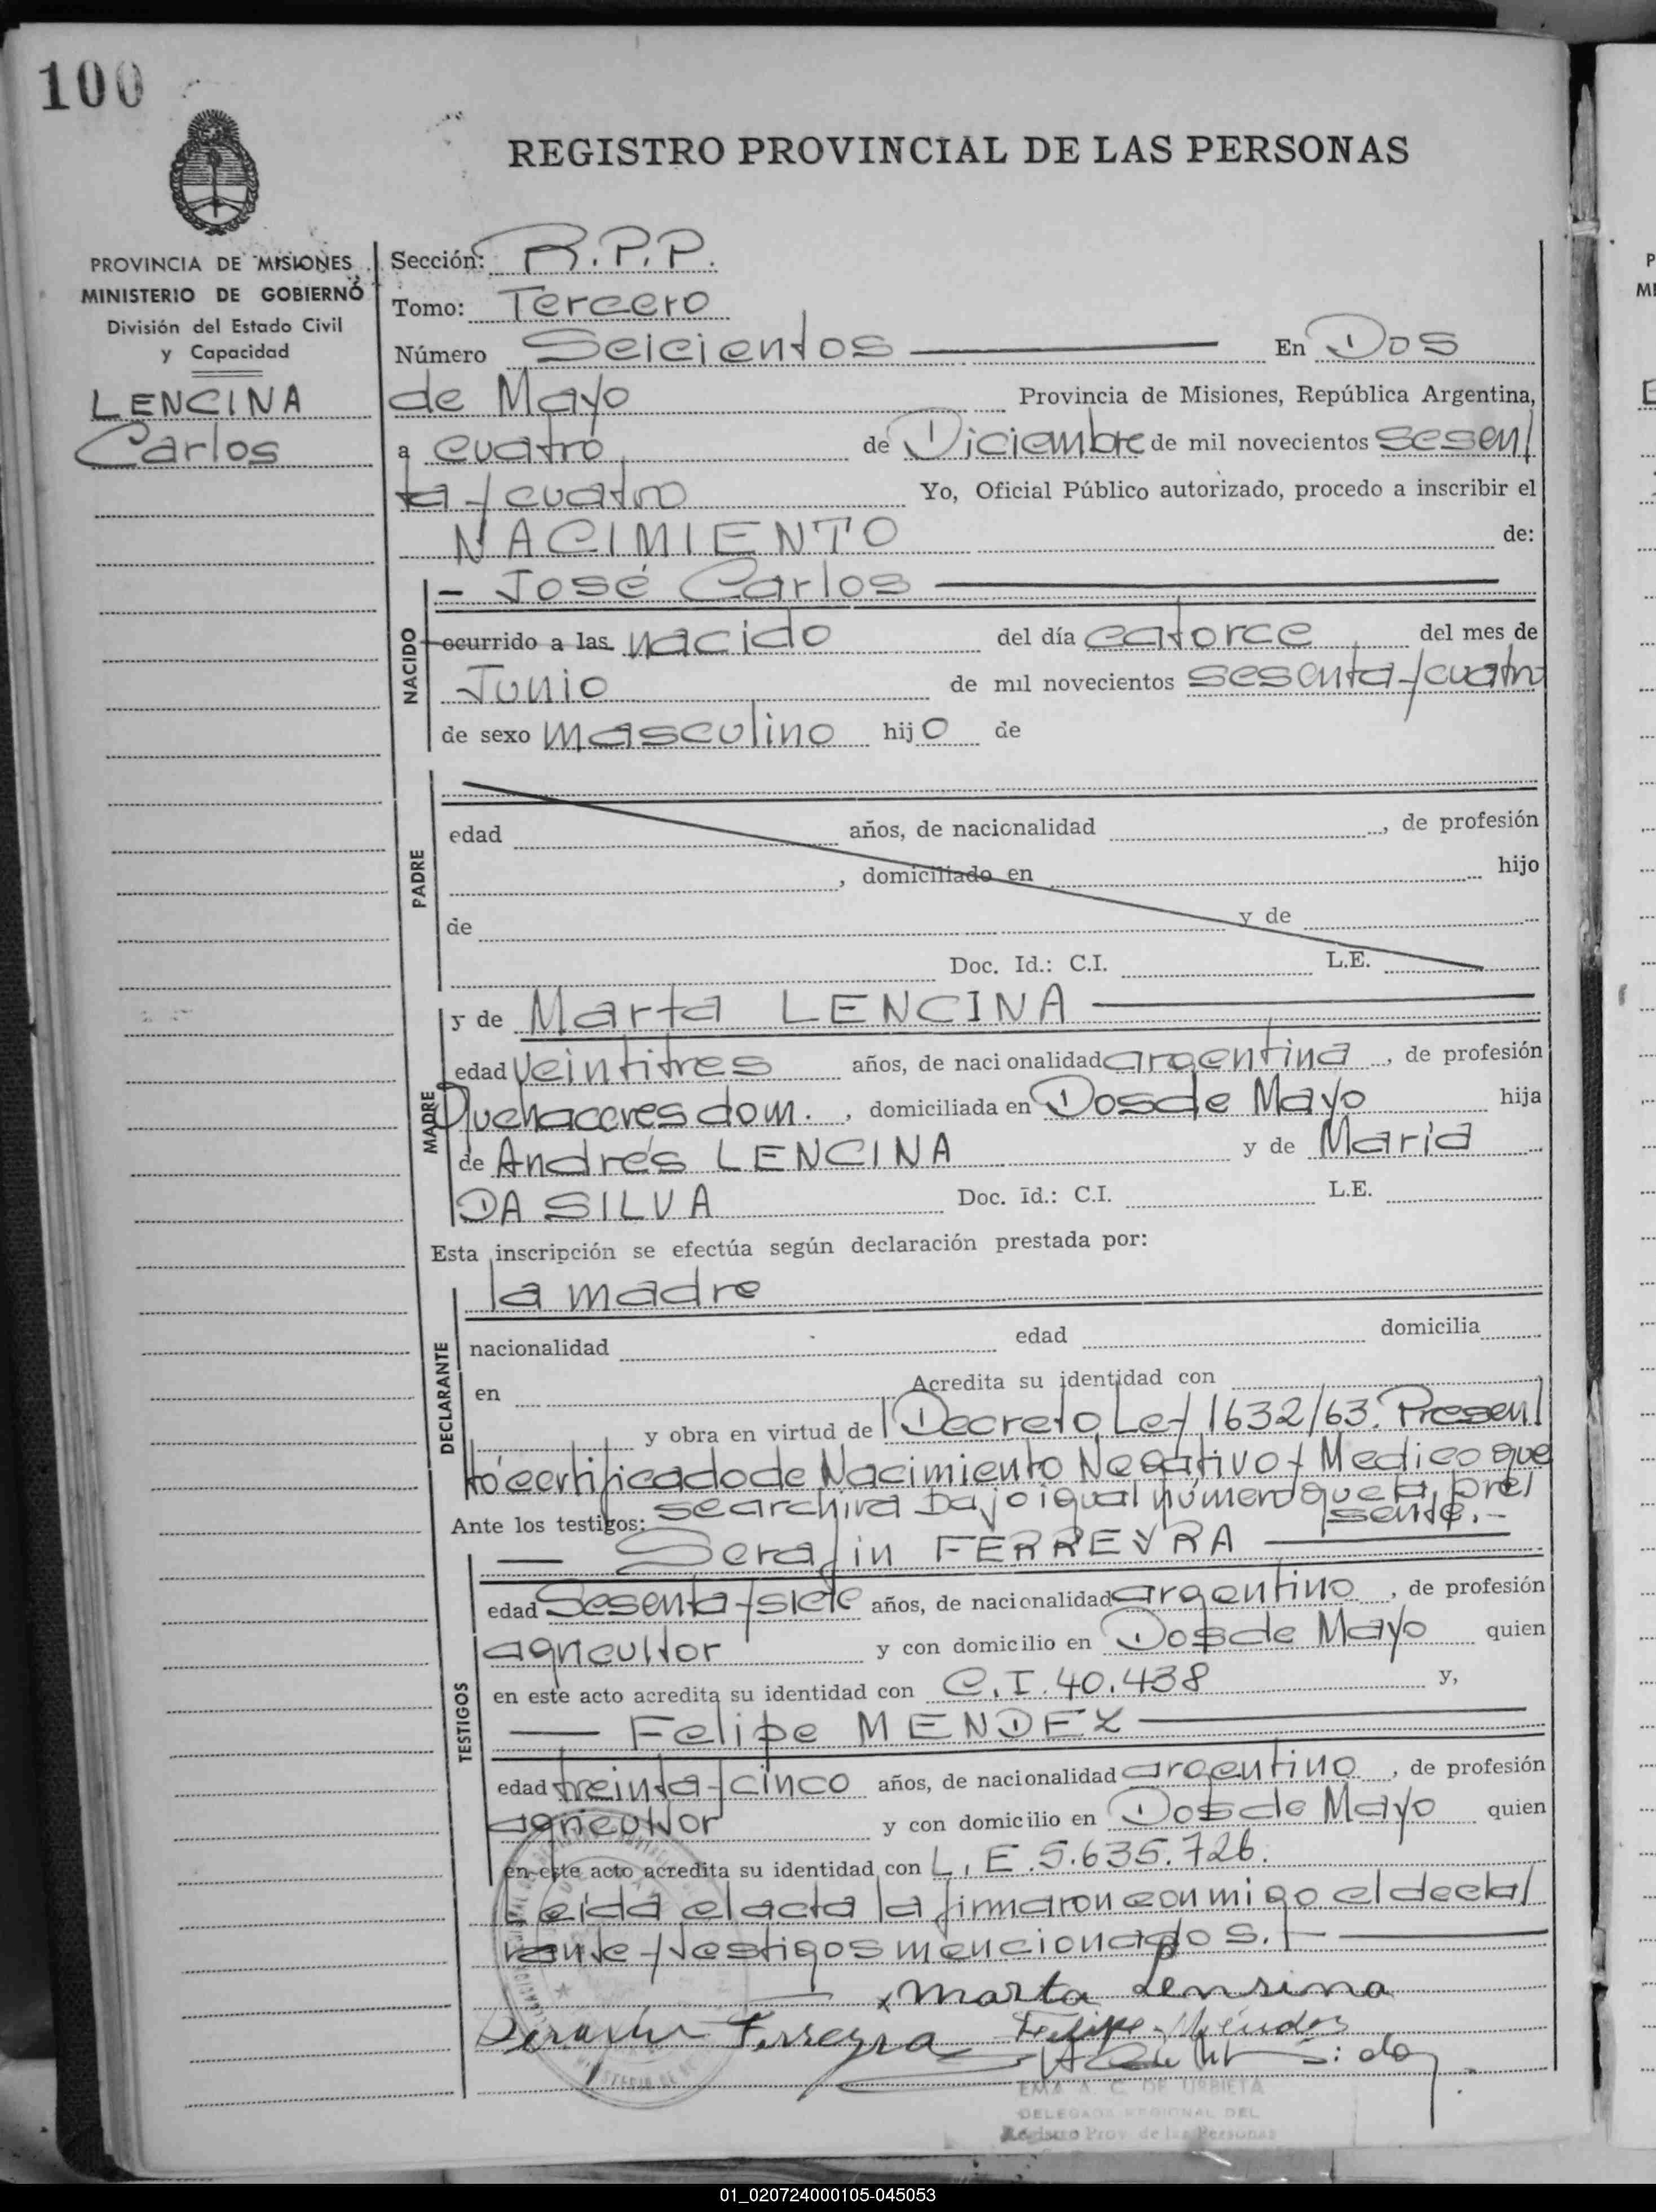 100
REGISTRO PROVINCIAL DE LAS PERSONAS
PROVINCIA DE MISIONES
MINISTERIO DE GOBIERNO
División del Estado Civil
y Capacidad
LENCINA
Carlos
Sección: R.P.P.
Tomo: Tercero
Número Seicientos En Dos
de Mayo Provincia de Misiones, República Argentina,
a cuatro de Diciembre de mil novecientos sesen/
ta y cuatro Yo, Oficial Público autorizado, procedo a inscribir el
NACIMIENTO de:
NACIDO
- José Carlos
ocurrido a las nacido del día catorce del mes de
Junio de mil novecientos sesenta y cuatro
de sexo masculino hijo de
PADRE
edad años, de nacionalidad , de profesión
, domiciliado en hijo
de y de
Doc. Id.: C.I. L.E.
MADRE
y de Marta LENCINA
edad veintitres años, de nacionalidad argentina, de profesión
Quehaceres dom. , domiciliada en Dos de Mayo hija
de Andrés LENCINA y de Maria
DA SILVA Doc. Id.: C.I. L.E.
Esta inscripción se efectúa según declaración prestada por:
DECLARANTE
la madre
nacionalidad edad domicilia
en Acredita su identidad con
y obra en virtud de Decreto Ley 1632/63. Presen/
tó certificado de Nacimiento Negativo y Medico que
se archiva bajo igual número que la pre/
sente.-
Ante los testigos:
TESTIGOS
Serafin FERREYRA
edad Sesenta y siete años, de nacionalidad argentino, de profesión
agricultor y con domicilio en Dos de Mayo quien
en este acto acredita su identidad con C.I. 40.438 y,
Felipe MENDEZ
edad treinta y cinco años, de nacionalidad argentino, de profesión
agricultor y con domicilio en Dos de Mayo quien
en este acto acredita su identidad con L.E. 5.635.726.
Leida el acta la firmaron conmigo el decla/
rante y testigos mencionados.
x marta Lensina
Ferreyra Felipe Méndes
EMA A. C. DE URBIETA
DELEGADO REGIONAL DEL
Registro Prov de las Personas
01_020724000105-045053